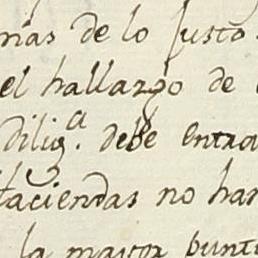 mas de lo Justo.
el hallazgo de
dilig.ª debe entra
Haciendas no han
la mayor punt